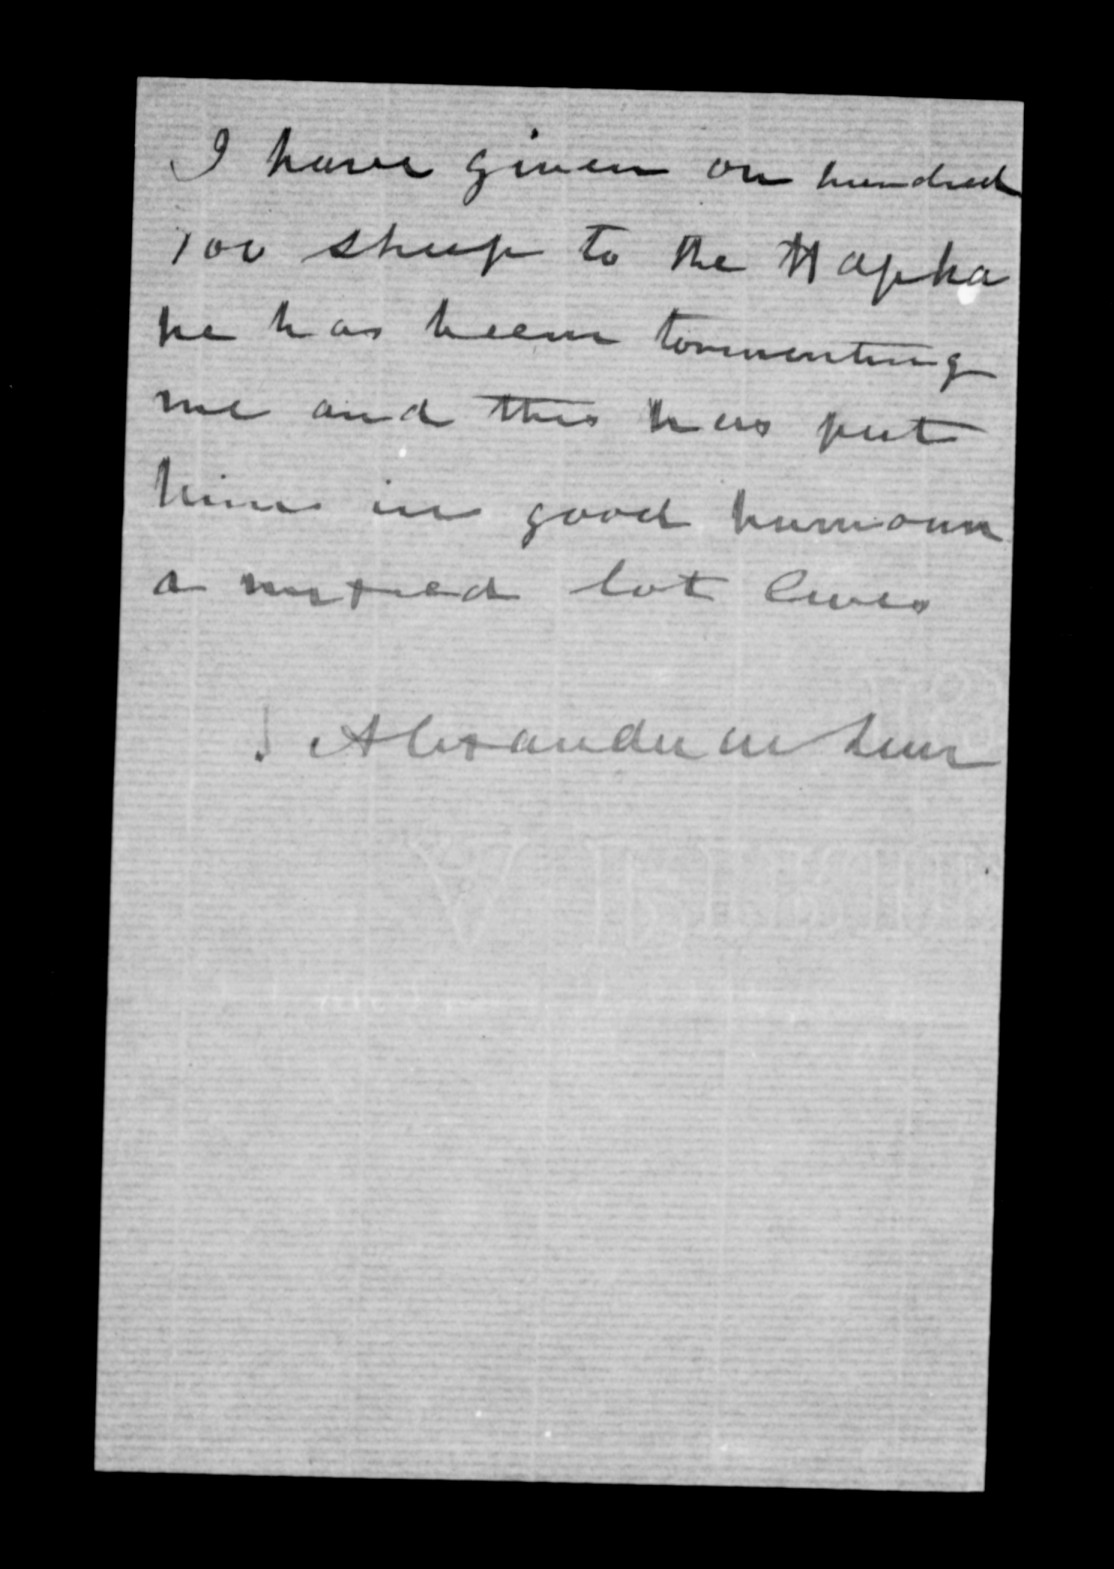 I have given on hundred
100 sheep to the Hapka
he has been tormenting
me and this has put
him in good humour
a mixed lot Ewes
Alexander McLean